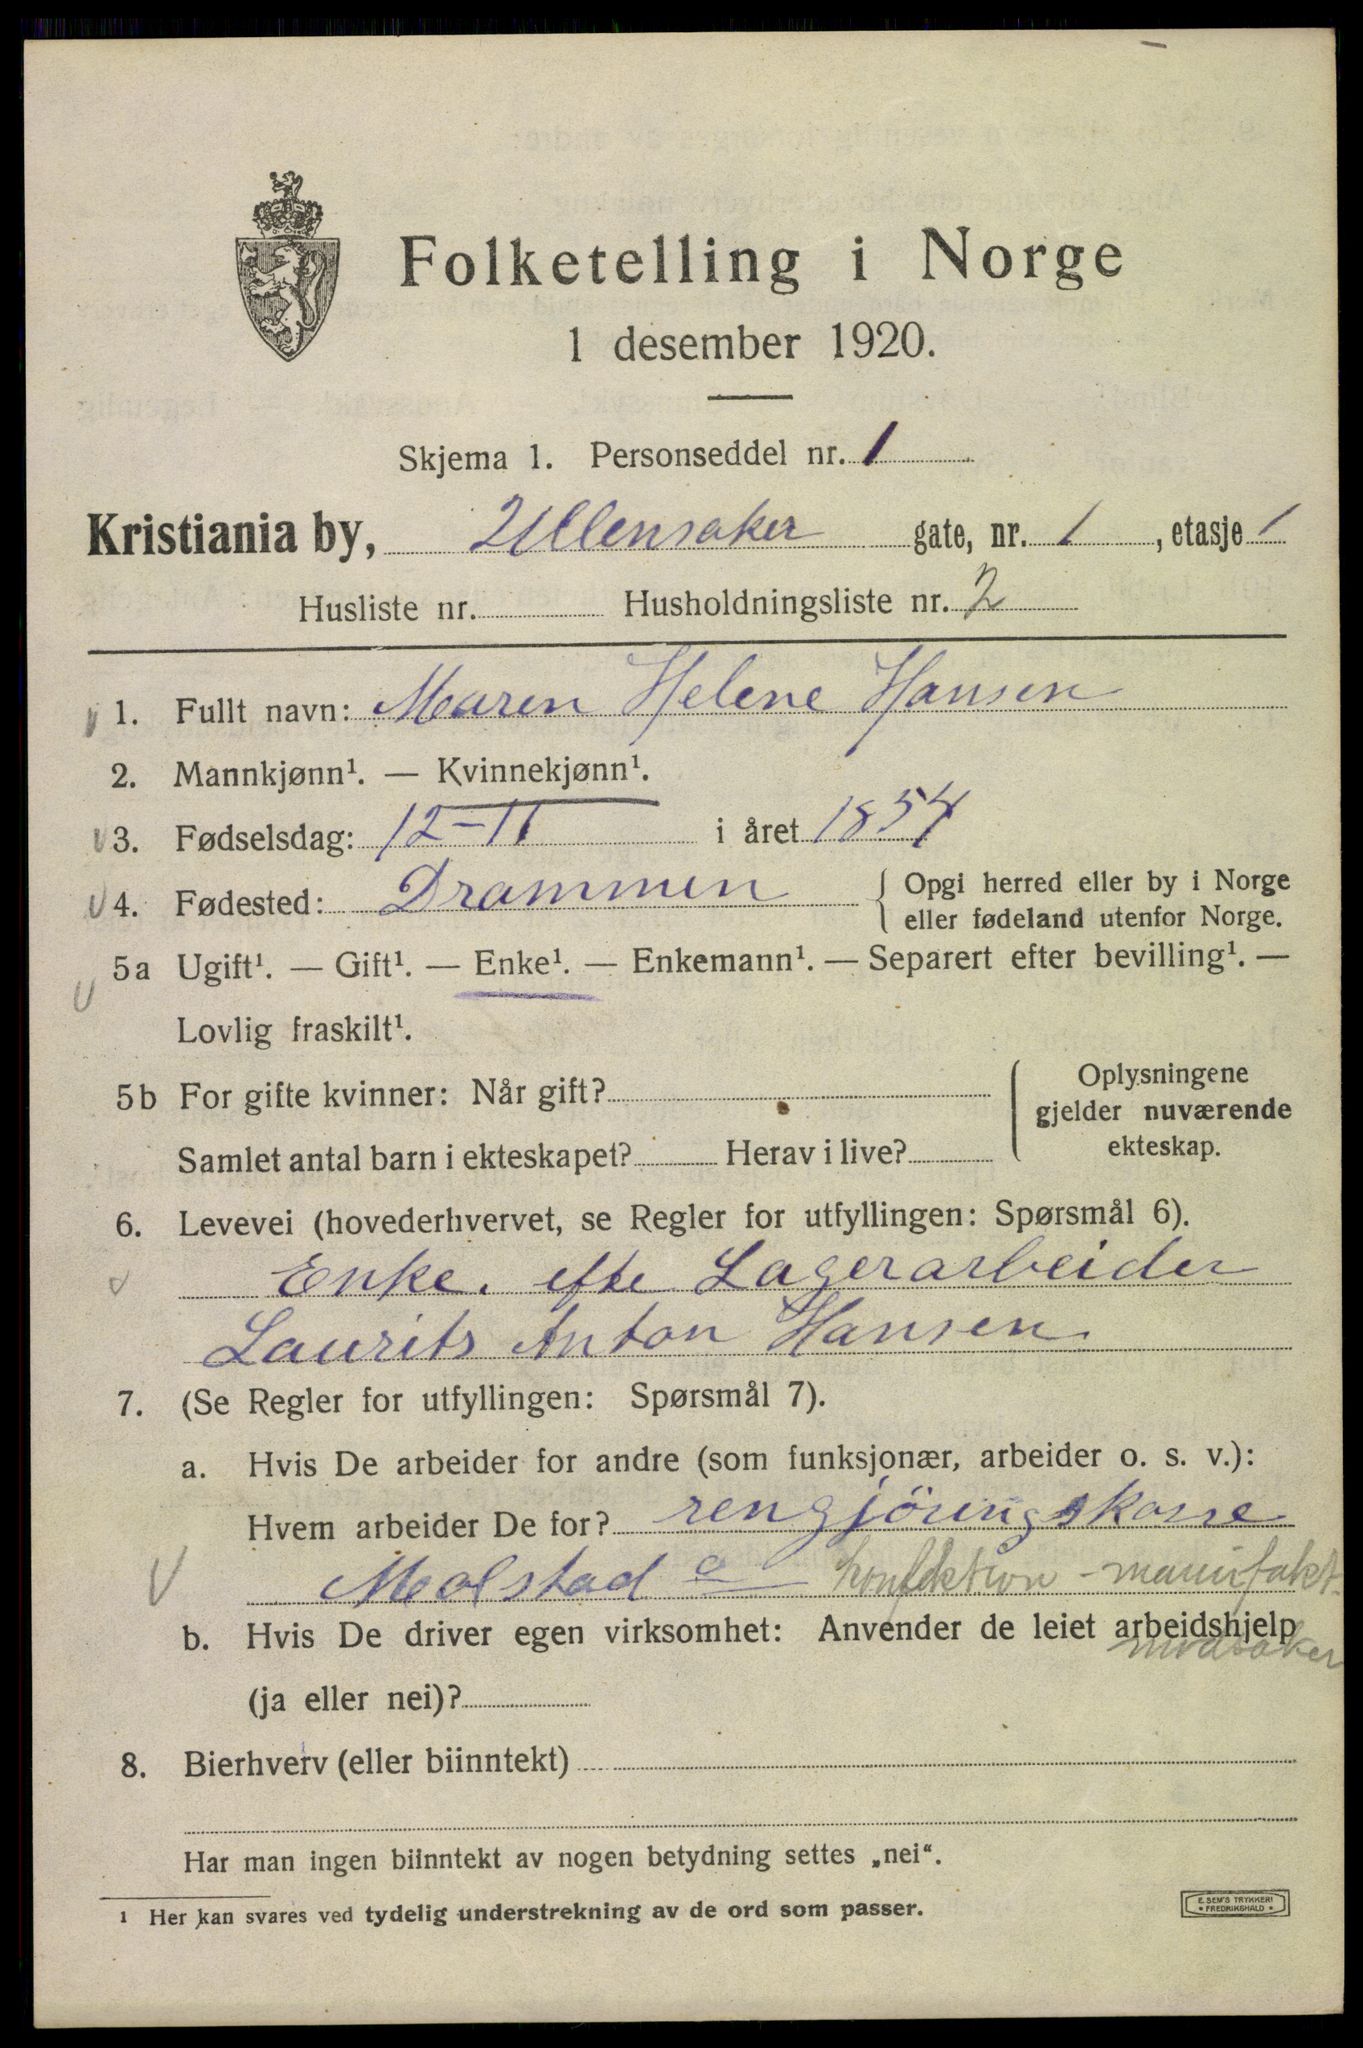 Folketelling i Norge
1 desember 1920.
Skjema 1. Personseddel nr. 1
Kristiania by, Ullensaker gate, nr. 1, etasje 1
Husliste nr. Husholdningsliste nr. 2
1. Fullt navn: Maren Helene Hansen
2. Mannkjønn¹. — Kvinnekjønn¹.
3. Fødselsdag: 12-11 i året 1854
4. Fødested: Drammen { Opgi herred eller by i Norge
eller fødeland utenfor Norge.
5a Ugift¹. — Gift¹. — Enke¹. — Enkemann¹. — Separert efter bevilling¹. —
Lovlig fraskilt¹.
5b For gifte kvinner: Når gift?
Samlet antal barn i ekteskapet? Herav i live?
Oplysningene
gjelder nuværende
ekteskap.
6. Levevei (hovederhvervet, se Regler for utfyllingen: Spørsmål 6).
Enke. efte Lagerarbeider
Laurits Anton Hansen
7. (Se Regler for utfyllingen: Spørsmål 7).
a. Hvis De arbeider for andre (som funksjonær, arbeider o. s. v.):
Hvem arbeider De for? rengjöringskone
Molstad konfektion - manufakt-
b. Hvis De driver egen virksomhet: Anvender de leiet arbeidshjelp
(ja eller nei)?
8. Bierhverv (eller biinntekt)
Har man ingen biinntekt av nogen betydning settes „nei“.
1 Her kan svares ved tydelig understrekning av de ord som passer.
E. SEM'S TRYKKERI
• FREDRIKSHALD •